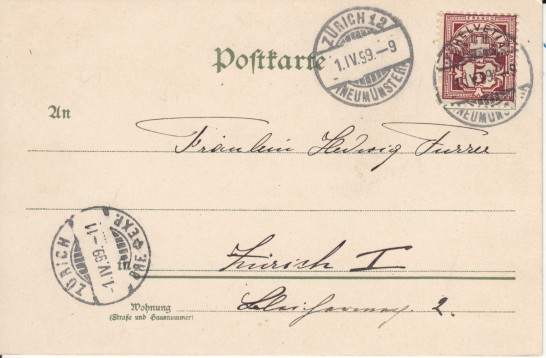 Postkarte
ZÜRICH 12
1.IV.99.–9
(NEUMÜNSTER)
HELVETIA
FRANCO
5
NEUMÜNSTER
An
Fräulein Hedwig Furrer
ZÜRICH
1.IV.99–11
BRF. EXP.
in
Zürich I
Bleicherweg 2.
Wohnung
(Straße und Hausnummer)